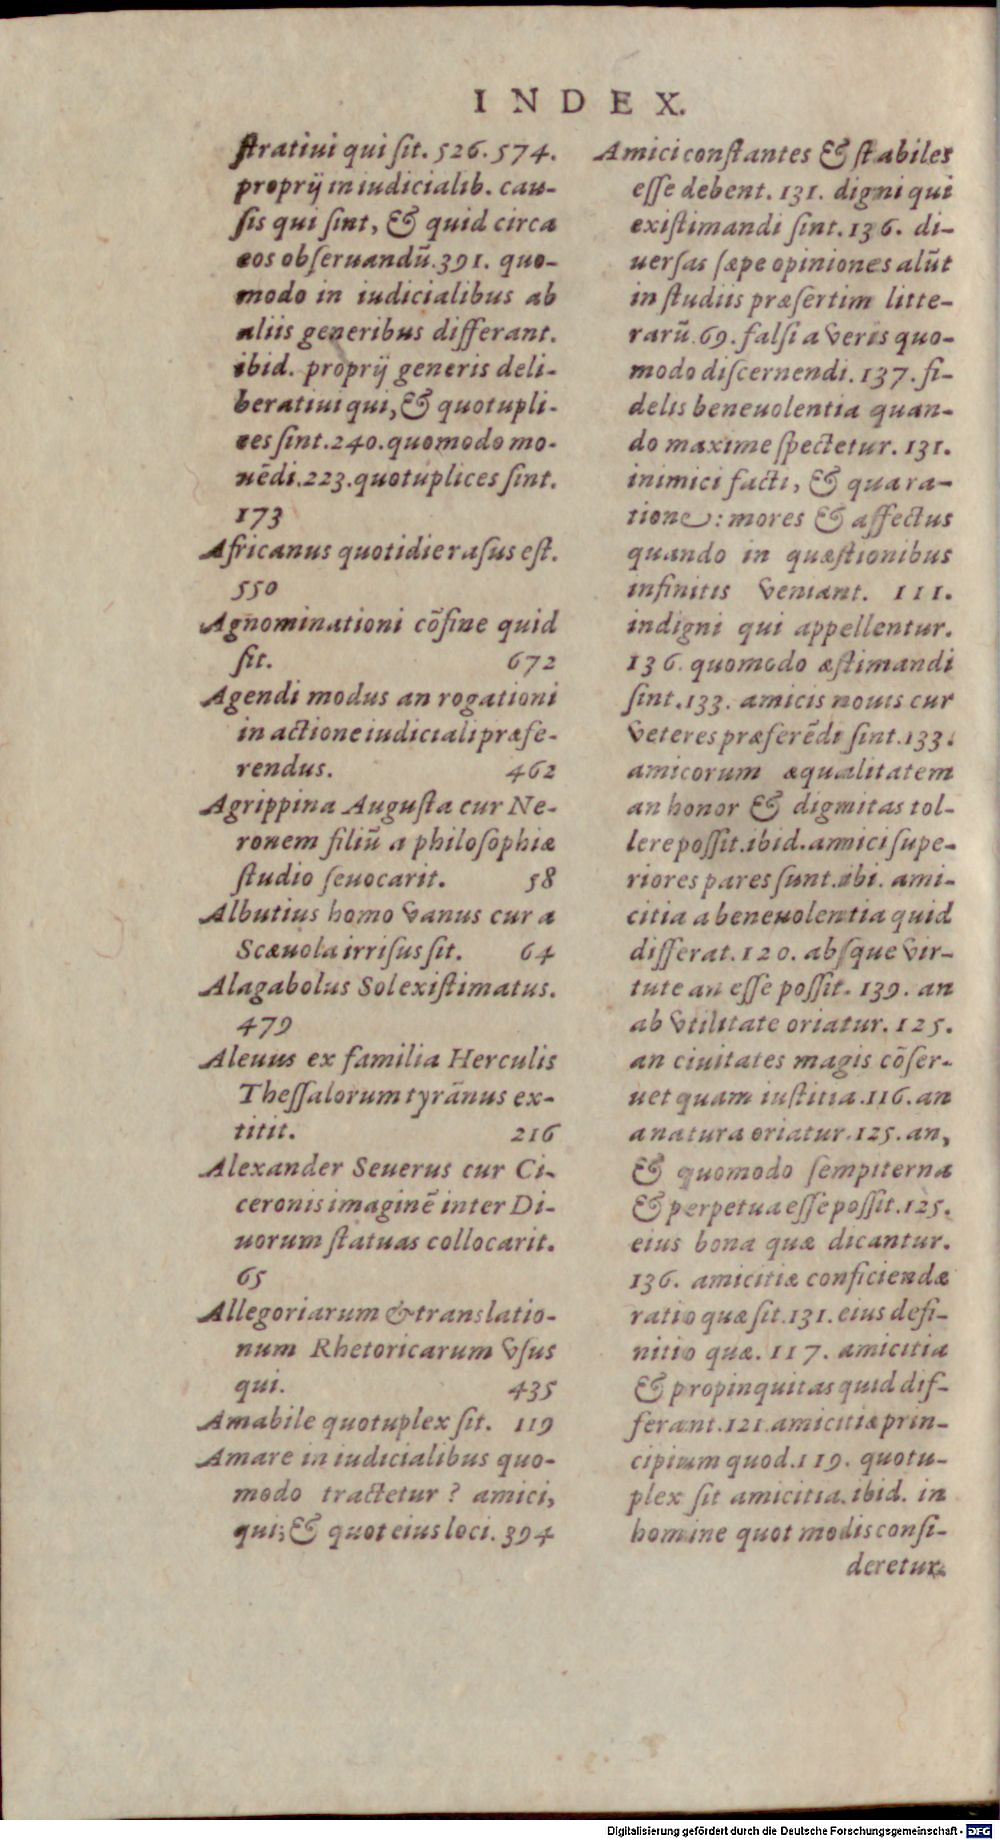 INDEX.
ſtratiui qui ſit. 526. 574.
proprij in iudicialib. cau-
ſis qui ſint, & quid circa
eos obſeruandũ. 391. quo-
modo in iudicialibus ab
aliis generibus differant.
ibid. proprij generis deli-
beratiui qui, & quotupli-
ces ſint. 240. quomodo mo-
uẽdi. 223. quotuplices ſint.
173
Africanus quotidie raſus eſt.
550
Agnominationi cõfine quid
ſit. 672
Agendi modus an rogationi
in actione iudiciali præfe-
rendus. 462
Agrippina Auguſta cur Ne-
ronem filiũ a philoſophiæ
ſtudio ſeuocarit. 58
Albutius homo vanus cur a
Scæuola irriſus ſit. 64
Alagabolus Sol exiſtimatus.
479
Aleuus ex familia Herculis
Theſſalorum tyrãnus ex-
titit. 216
Alexander Seuerus cur Ci-
ceronis imaginẽ inter Di-
uorum ſtatuas collocarit.
65
Allegoriarum & translatio-
num Rhetoricarum vſus
qui. 435
Amabile quotuplex ſit. 119
Amare in iudicialibus quo-
modo tractetur? amici,
qui; & quot eius loci. 394
Amici conſtantes & ſtabiles
eſſe debent. 131. digni qui
exiſtimandi ſint. 136. di-
uerſas ſæpe opiniones alũt
in ſtudiis præſertim litte-
rarũ. 69. falſi a veris quo-
modo diſcernendi. 137. fi-
delis beneuolentia quan-
do maxime ſpectetur. 131.
inimici facti, & qua ra-
tione: mores & affectus
quando in quæſtionibus
infinitis veniant. 111.
indigni qui appellentur.
136. quomodo æſtimandi
ſint. 133. amicis nouis cur
veteres præferẽdi ſint. 133.
amicorum æqualitatem
an honor & dignitas tol-
lere poſſit. ibid. amici ſupe-
riores pares ſunt. ibi. ami-
citia a beneuolentia quid
differat. 120. abſque vir-
tute an eſſe poſſit. 139. an
ab vtilitate oriatur. 125.
an ciuitates magis cõſer-
uet quam iuſtitia. 116. an
a natura oriatur. 125. an,
& quomodo ſempiterna
& perpetua eſſe poſſit. 125.
eius bona quæ dicantur.
136. amicitiæ conficiendæ
ratio quæ ſit. 131. eius defi-
nitio quæ. 117. amicitia
& propinquitas quid dif-
ferant. 121. amicitiæ prin-
cipium quod. 119. quotu-
plex ſit amicitia. ibid. in
homine quot modis conſi-
deretur.
Digitalisierung gefördert durch die Deutsche Forschungsgemeinschaft - DFG